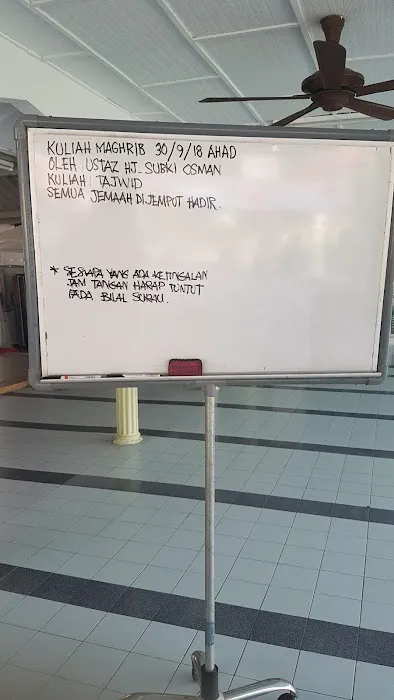 KULIAH MAGHRIB 30/9/18 AHAD
OLEH : USTAZ HJ. SUBKI OSMAN
KULIAH : TAJWID
SEMUA JEMAAH DIJEMPUT HADIR.
* SESIAPA YANG ADA KETINGGALAN
JAM TANGAN HARAP TUNTUT
PADA BILAL SURAU.